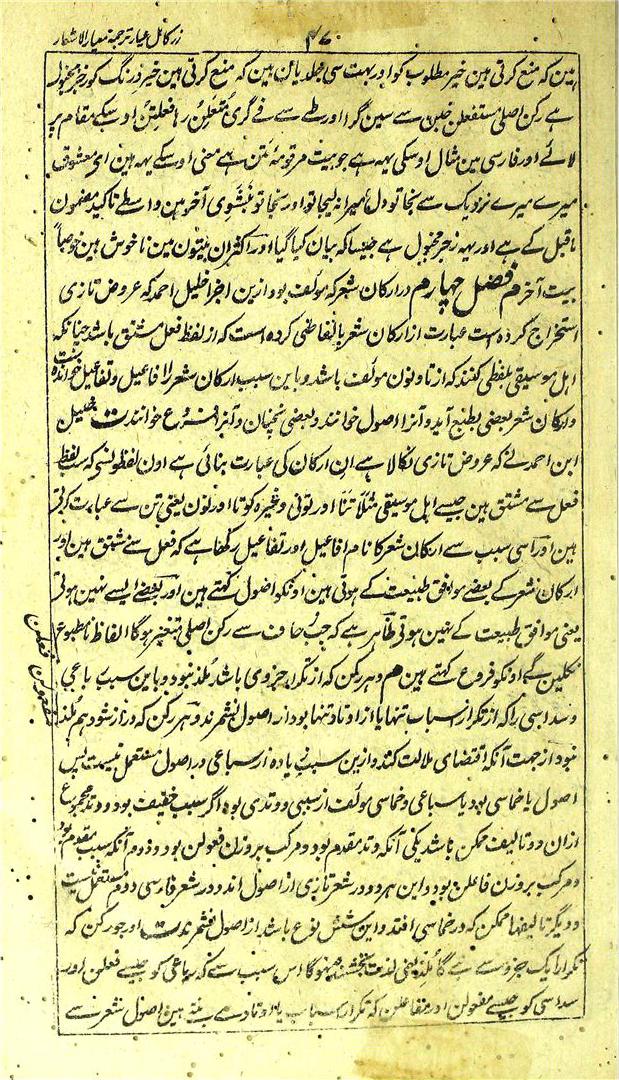 زر کامل عیار ترجمہ معیار الاشعار
۴۷
ہین کہ منع کرتی ہین خیر مطلوب کو اور بہت سی جلد یان ہین کہ منع کرتی ہین خیر درنگ کو رجز مخبول
ہے رکن اصلی مستفعلن خبن سے سین گرا اور طے سے فے گری مُتَعِلُن رہا فعلتن اوسکے مقام پر
لائے اور فارسی مین مثال اوسکی یہہ ہے جو بیت مرقومۂ متن ہے معنی اوسکے یہہ ہین ای معشوق
میرے میرے نزدیک سے نجا تو دل میرا نہ لیجا تو اور نجا تو نشوی آخر مین واسطے تاکید مضمون
ماقبل کے ہے اور یہہ رجز مخبول ہے جیسا کہ بیان کیا گیا اور اکثر ان بیتون مین ناخوش ہین خصوصاً
بیت آخر م فصل چہارم در ارکان شعر کہ مولف بود ازین اجزا خلیل احمد کہ عروض تازی
استخراج کردہ است عبارت از ارکان شعر بالفاظی کردہ است کہ از لفظ فعل مشتق باشد چنانکہ
اہل موسیقی بلفظی کنند کہ از تا و نون مولف باشد و باین سبب ارکان شعر را افاعیل و تفاعیل خواندہ است
و ارکان شعر بعضی بطبع آید و آنرا اصول خوانند و بعضی نچنان و آنرا فروع خوانند ت خلیل
ابن احمد نے کہ عروض تازی نکالا ہے ان ارکان کی عبارت بنائی ہے اون لفظونسی کہ سب لفظ
فعل سے مشتق ہین جیسے اہل موسیقی مثلاً تنا اور تونی وغیرہ کو تا اور نون یعنی تن سے عبارت کرتی
ہین اور اسی سبب سے ارکان شعر کا نام افاعیل اور تفاعیل رکھا ہے کہ فعل سے مشتق ہین اور
ارکان شعر کے بعضے موافق طبیعت کے ہوتی ہین اونکو اصول کہتے ہین اور بعضے ایسے نہین ہوتی
یعنی موافق طبیعت کے نہین ہوتی ظاہر ہے کہ جب زحاف سے رکن اصلی متغیر ہوگا الفاظ نامطبوع
نکلین گے اونکو فروع کہتے ہین م و ہر رکن کہ از تکرار جزوی باشد ملذ نبود و باین سبب رباعی
و سداسی را کہ از تکرار اسباب تنہا یا از اوتاد تنہا بود از اصول نشمرند و ہر رکن کہ دراز شود ہم ملذ
نبود از جہت آنکہ اقتضای ملالت کند و ازین سبب زیادہ از سباعی در اصول مستعمل نیست پس
اصول یا خماسی بود یا سباعی و خماسی مولف از سببی و وتدی بود اگر سبب خفیف بود و وتد مجموع
ازان دو تالیف ممکن باشد یکی آنکہ وتد مقدم بود و مرکب بر وزن فعولن بود و دوم آنکہ سبب مقدم بود
و مرکب بر وزن فاعلن بود و این ہر دو در شعر تازی از اصول اند و در شعر فارسی دوم مستعمل نیست
و دیگر تالیفہا ممکن کہ در خماسی افتد و این شش نوع باشد از اصول نشمرند ت اور جو رکن کہ
تکرار ایک جزو سے ہے گا ملذ یعنی لذت بخشندہ نہوگا اس سبب سے کہ رباعی کو جیسے فعلن اور
سداسی کو جیسے مفعولن اور مفاعلن کہ تکرار اسباب یا اوتاد سے بنتے ہین اصول شعر سے